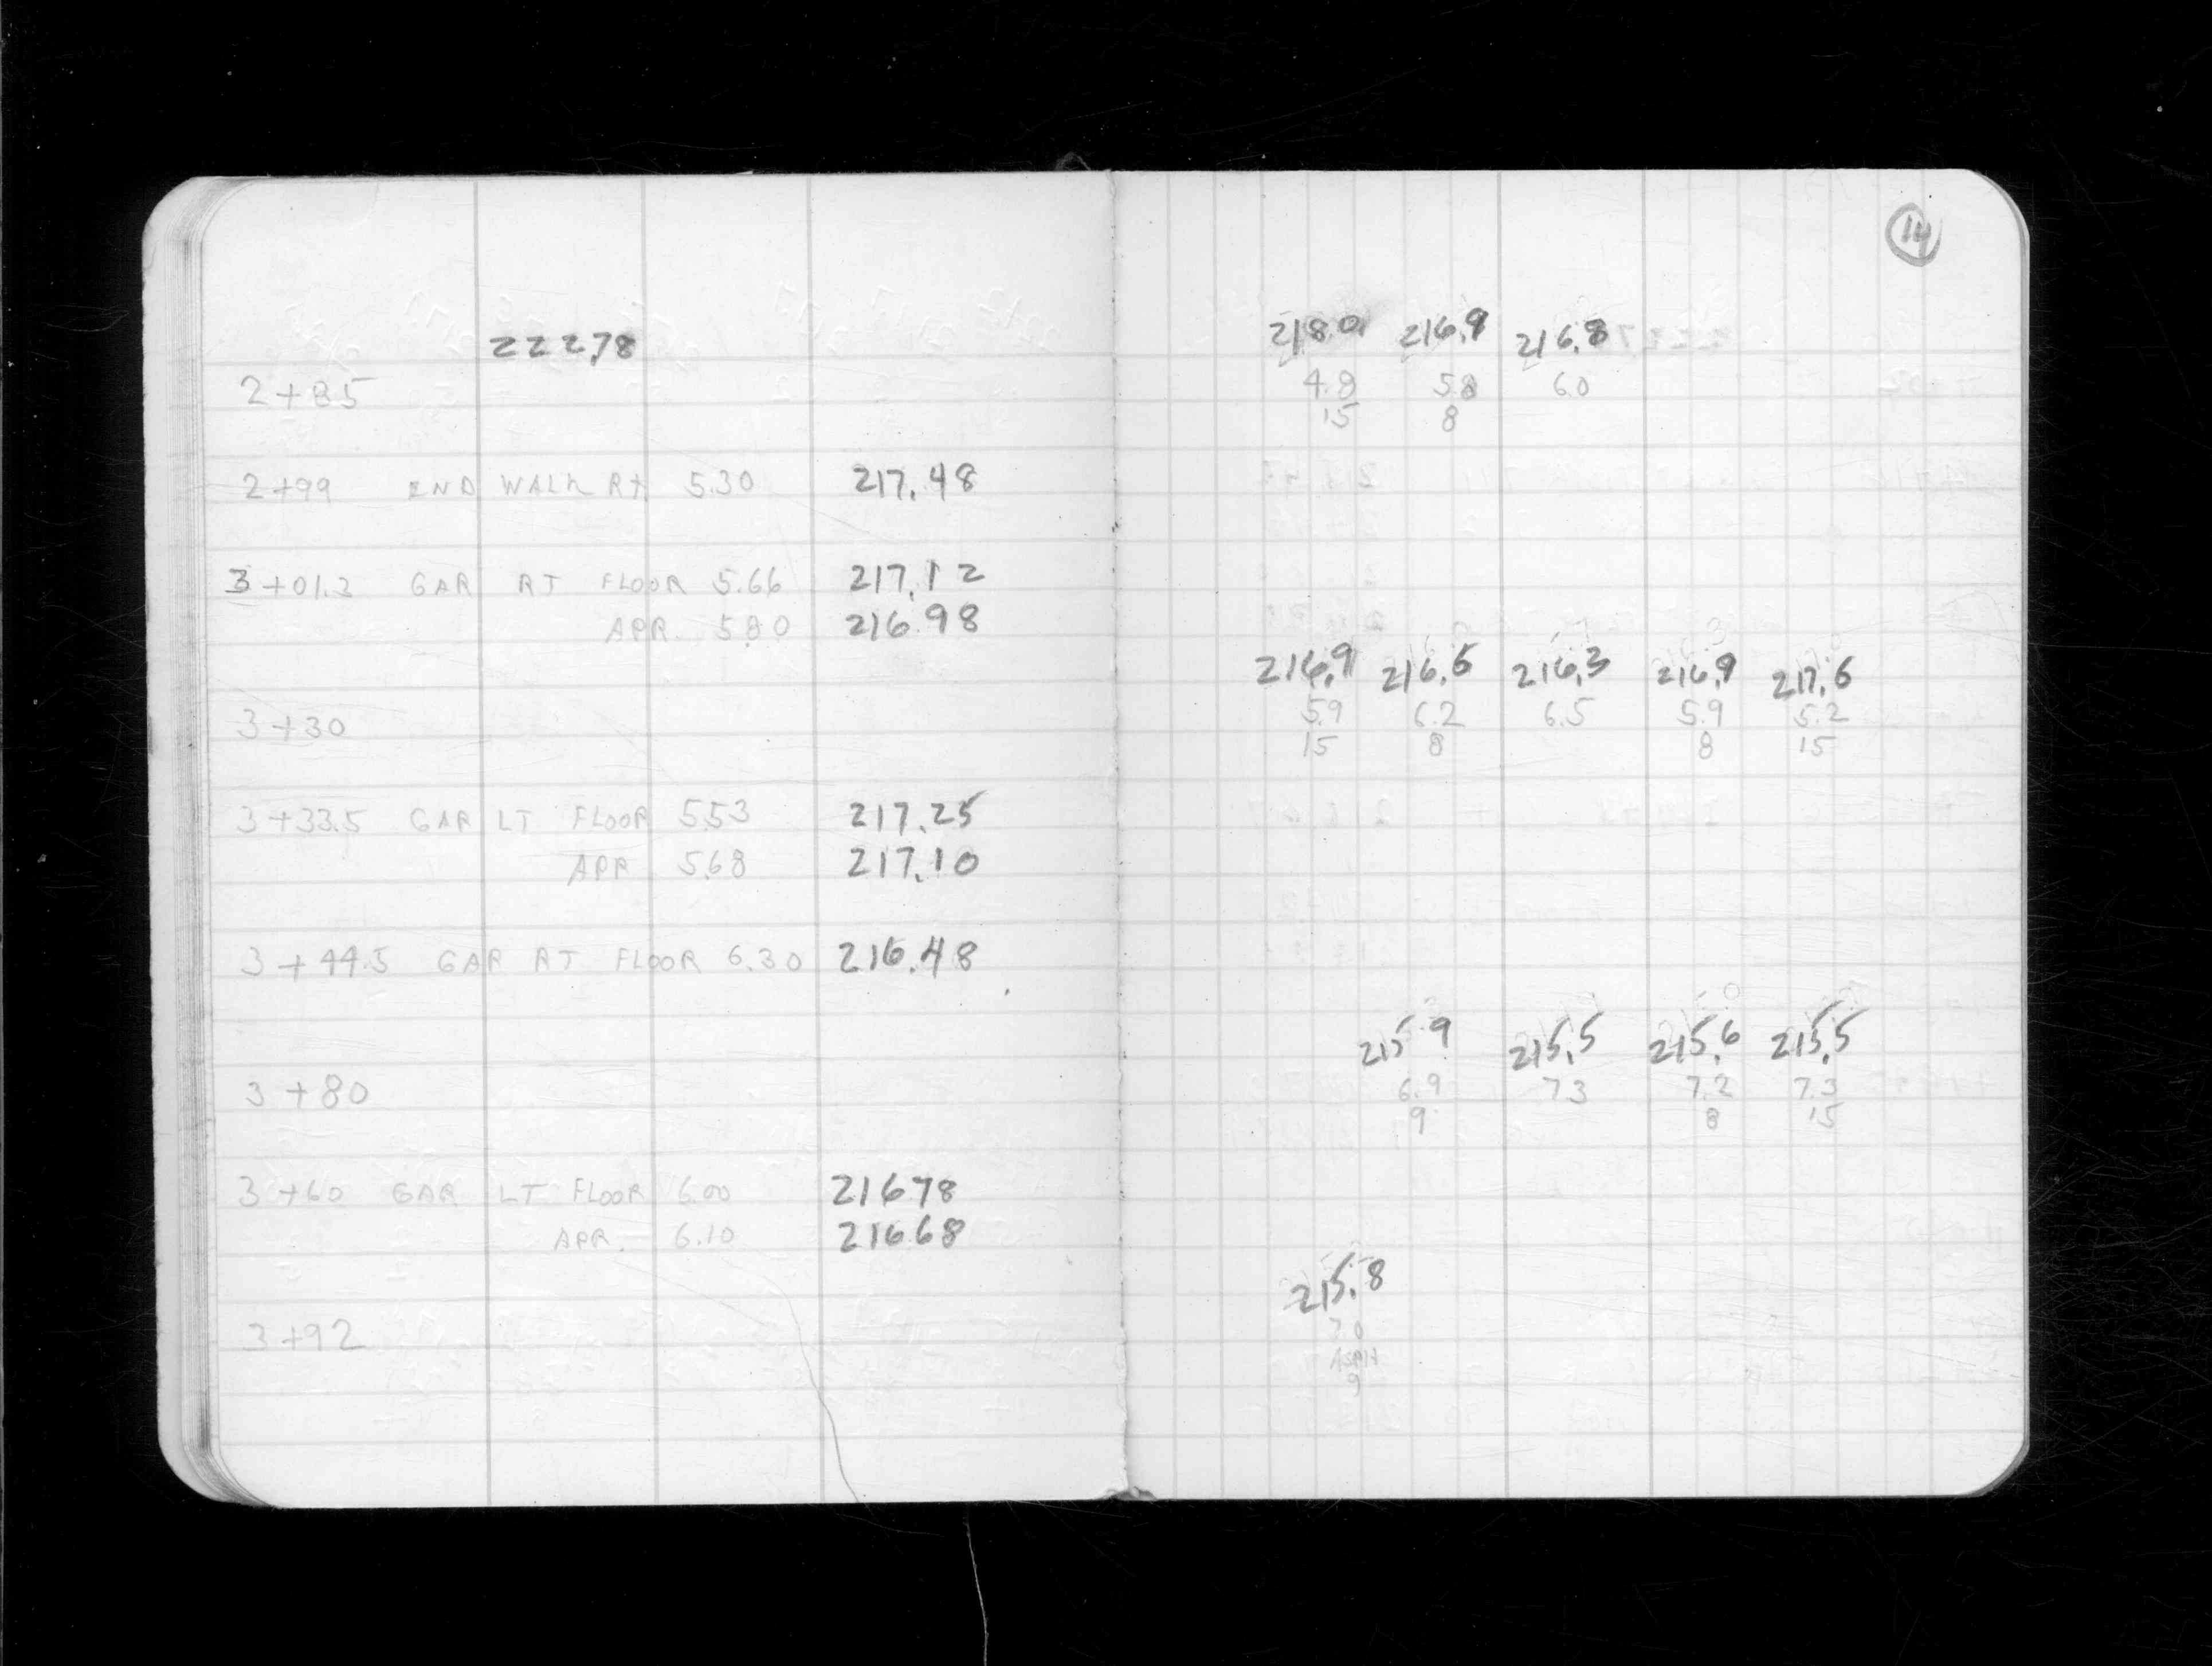 222.78
2+85
2+99 END WALK RT 5.30 217.48
3+01.2 GAR RT FLOOR 5.66 217.12
APR. 5.80 216.98
3+30
3+33.5 GAR LT FLOOR 5.53 217.25
APR 5.68 217.10
3+44.5 GAR RT FLOOR 6.30 216.48
3+80
3+60 GAR LT FLOOR 6.00 21678
APR. 6.10 21668
3+92
14
218.0 216.9 216.8
4.8 5.8 6.0
15 8
216.9 216.6 216.3 216.9 217.6
5.9 6.2 6.5 5.9 5.2
15 8 8 15
215 9 215.5 215.6 215.5
6.9 7.3 7.2 7.3
9 8 15
215.8
7.0
ASPH
9